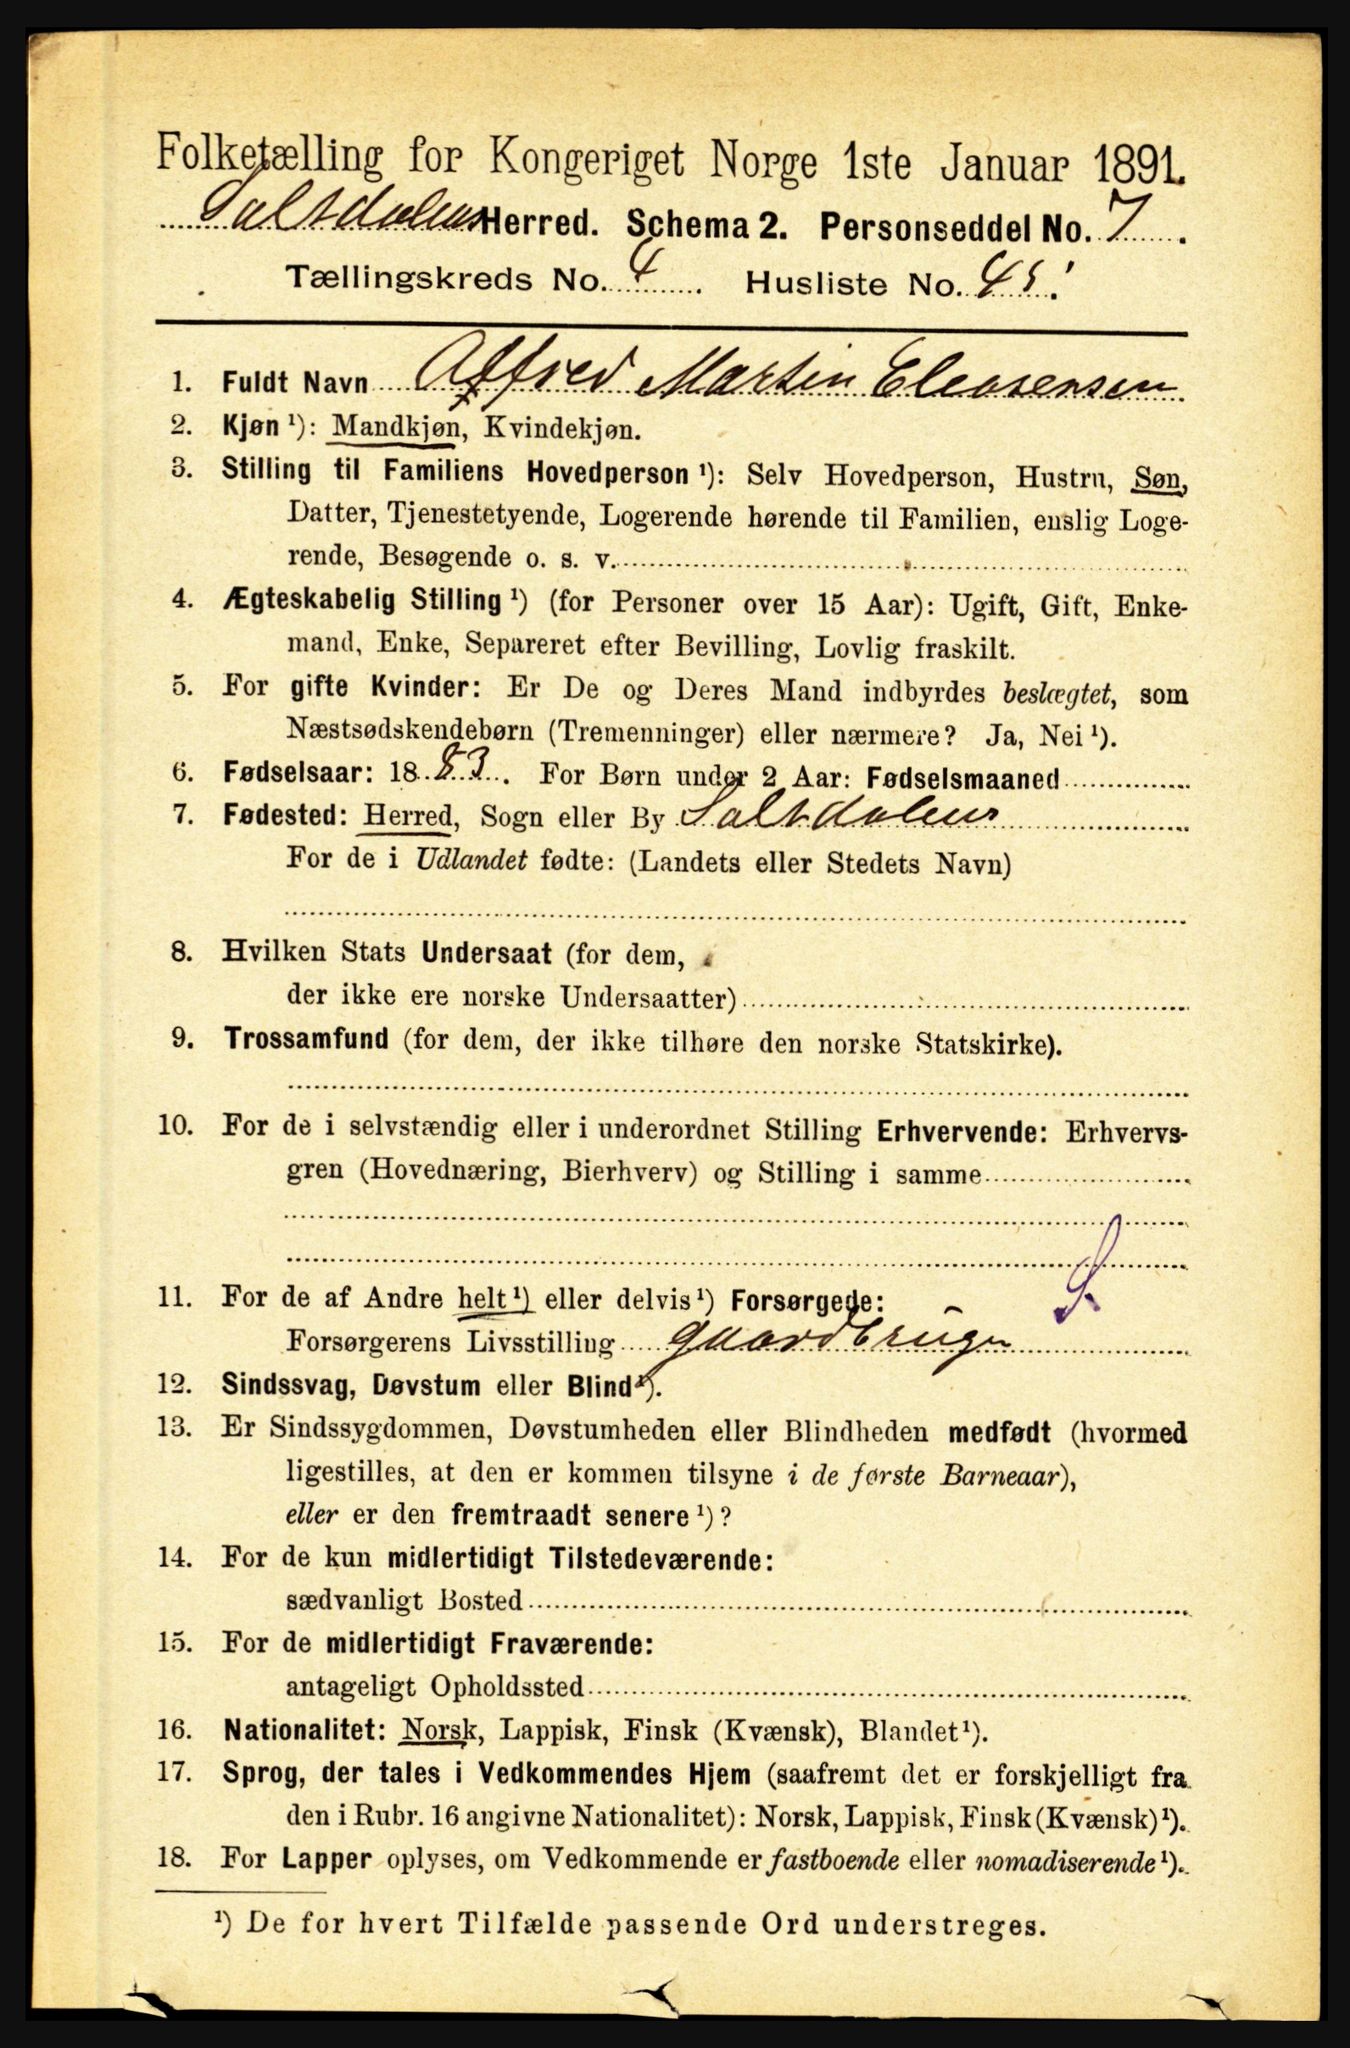 Folketælling for Kongeriget Norge 1ste Januar 1891.
Saltdalens Herred. Schema 2. Personseddel No. 7.
Tællingskreds No. 4. Husliste No. 45.
1. Fuldt Navn Alfred Martin Eleasensen
2. Kjøn ¹): Mandkjøn, Kvindekjøn.
3. Stilling til Familiens Hovedperson ¹): Selv Hovedperson, Hustru, Søn,
Datter, Tjenestetyende, Logerende hørende til Familien, enslig Loge-
rende, Besøgende o. s. v.
4. Ægteskabelig Stilling ¹) (for Personer over 15 Aar): Ugift, Gift, Enke-
mand, Enke, Separeret efter Bevilling, Lovlig fraskilt.
5. For gifte Kvinder: Er De og Deres Mand indbyrdes beslægtet, som
Næstsødskendebørn (Tremenninger) eller nærmere? Ja, Nei ¹).
6. Fødselsaar: 1883. For Børn under 2 Aar: Fødselsmaaned
7. Fødested: Herred, Sogn eller By Saltdalens
For de i Udlandet fødte: (Landets eller Stedets Navn)
8. Hvilken Stats Undersaat (for dem,
der ikke ere norske Undersaatter)
9. Trossamfund (for dem, der ikke tilhøre den norske Statskirke).
10. For de i selvstændig eller i underordnet Stilling Erhvervende: Erhvervs-
gren (Hovednæring, Bierhverv) og Stilling i samme
S.
11. For de af Andre helt ¹) eller delvis ¹) Forsørgede:
Forsørgerens Livsstilling gaardbruger
12. Sindssvag, Døvstum eller Blind ¹).
13. Er Sindssygdommen, Døvstumheden eller Blindheden medfødt (hvormed
ligestilles, at den er kommen tilsyne i de første Barneaar),
eller er den fremtraadt senere ¹)?
14. For de kun midlertidigt Tilstedeværende:
sædvanligt Bosted
15. For de midlertidigt Fraværende:
antageligt Opholdssted
16. Nationalitet: Norsk, Lappisk, Finsk (Kvænsk), Blandet ¹).
17. Sprog, der tales i Vedkommendes Hjem (saafremt det er forskjelligt fra
den i Rubr. 16 angivne Nationalitet): Norsk, Lappisk, Finsk (Kvænsk) ¹).
18. For Lapper oplyses, om Vedkommende er fastboende eller nomadiserende ¹).
¹) De for hvert Tilfælde passende Ord understreges.